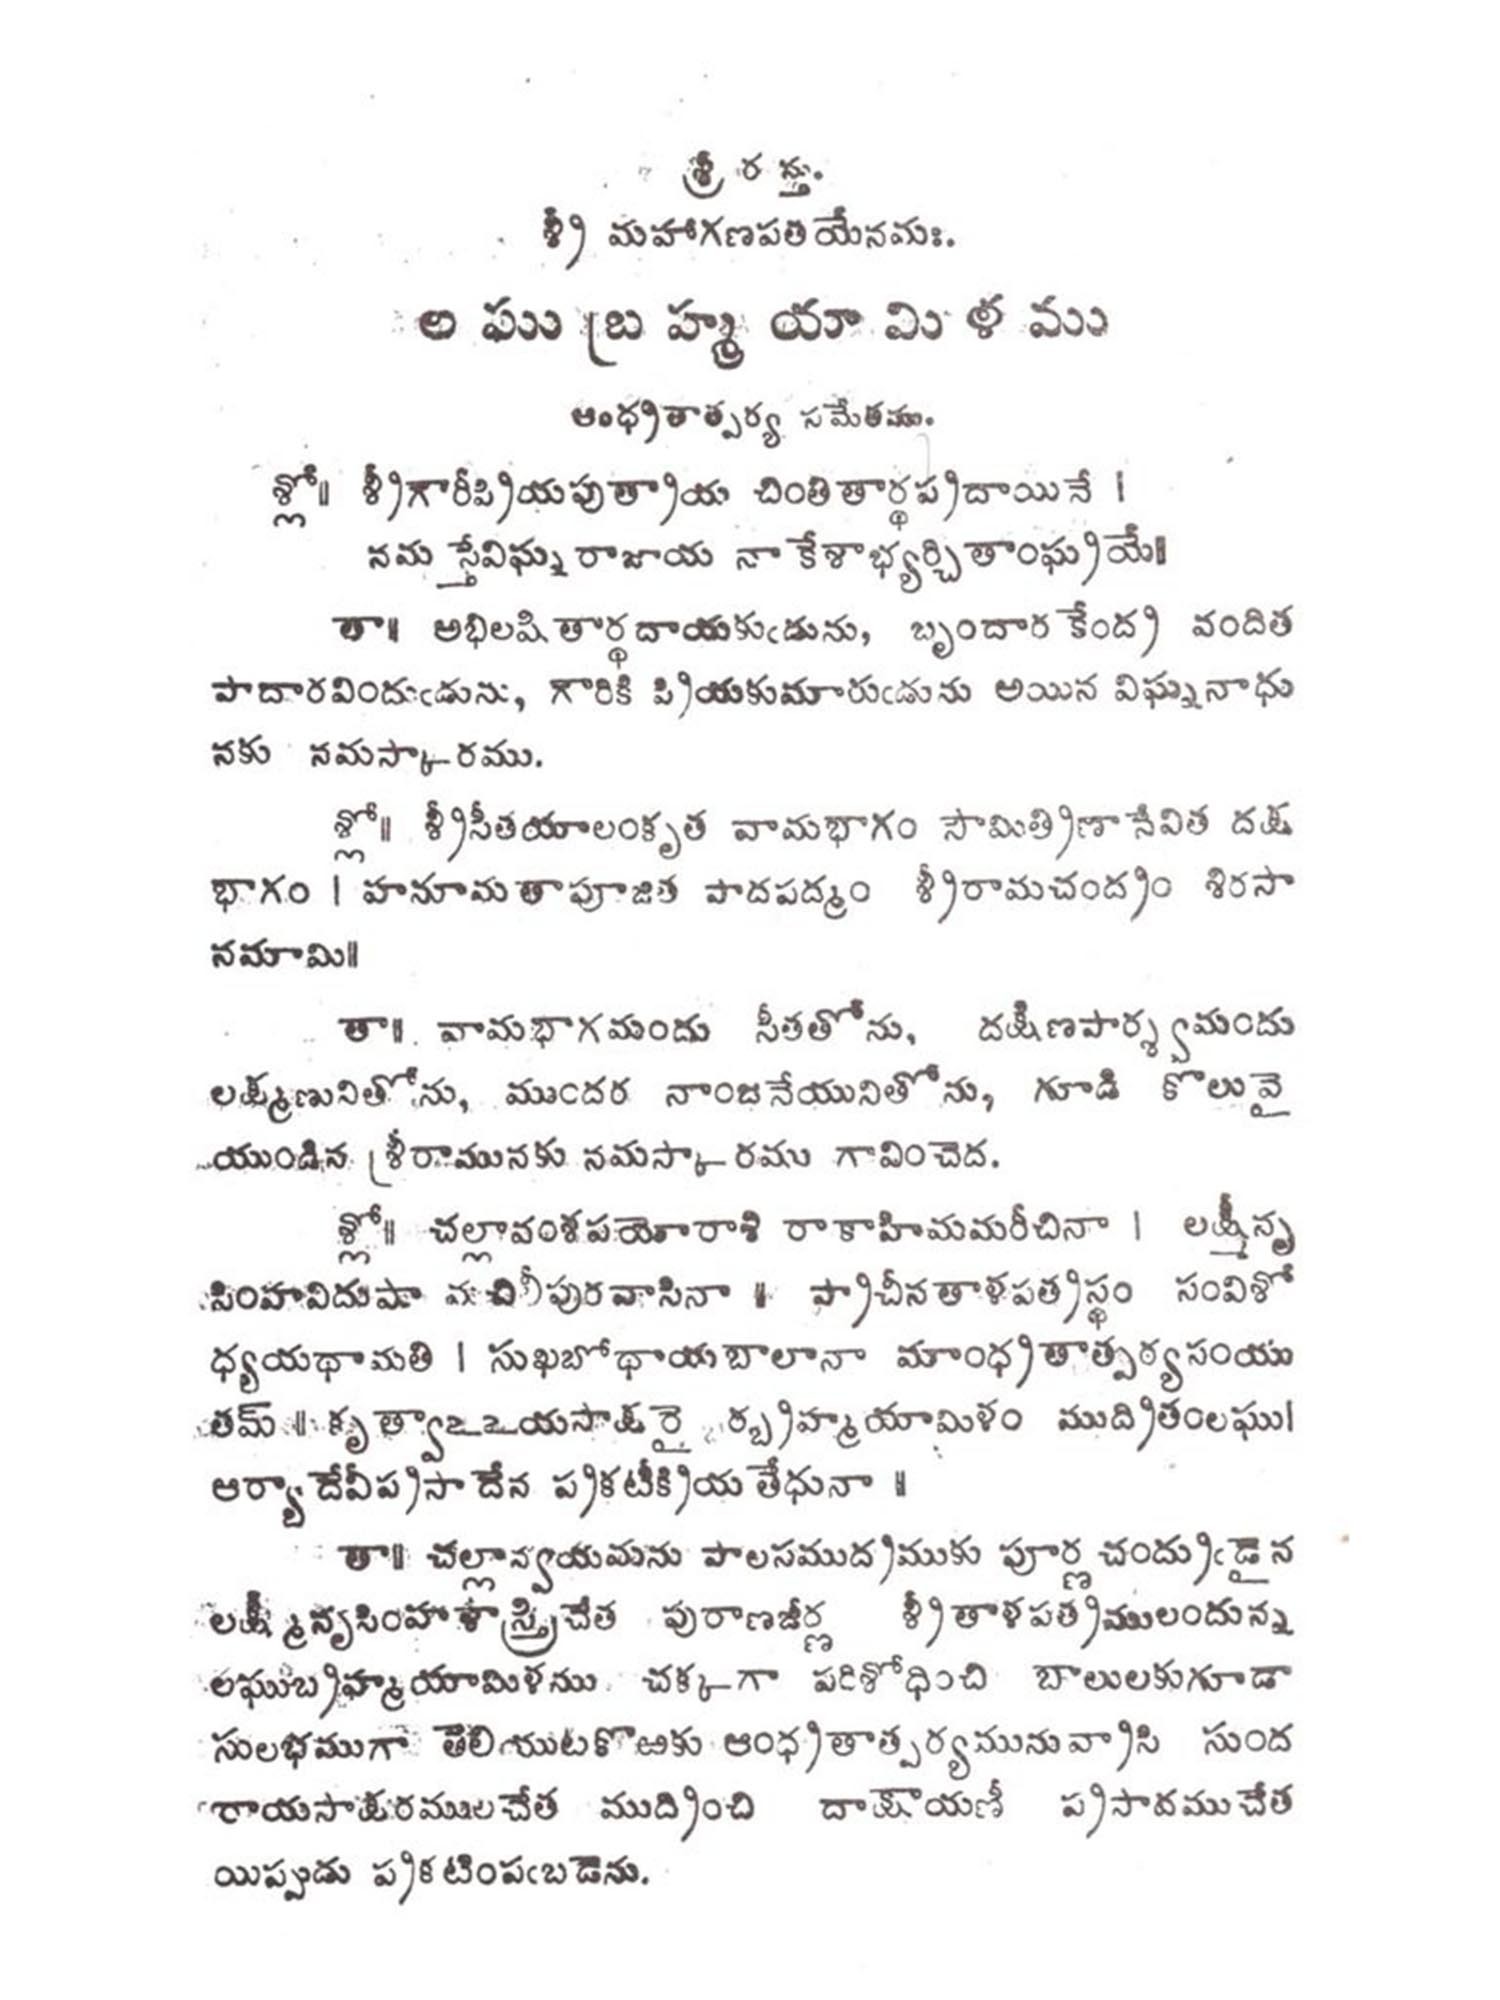 శ్రీ ర స్తు.
శ్రీ మహాగణపతియేనమః.
ల ఘు బ్ర హ్మ యా మి ళ ము
ఆంధ్రతాత్పర్య సమేతము.
శ్లో॥ శ్రీగౌరీప్రియపుత్రాయ చింతితార్థప్రదాయినే ।
నమ స్తేవిఘ్న రాజాయ నా కేశాభ్యర్చితాంఘ్రయే॥
తా॥ అభిలషితార్థదాయకుఁడును, బృందార కేంద్ర వందిత
పాదారవిందుఁడును, గౌరికి ప్రియకుమారుఁడును అయిన విఘ్ననాధు
నకు నమస్కారము.
శ్లో॥ శ్రీసీతయాలంకృత వామభాగం సౌమిత్రిణాసేవిత దక్ష
భాగం । హనూమతాపూజిత పాదపద్మం శ్రీరామచంద్రం శిరసా
నమామి॥
తా॥ వామభాగమందు సీతతోను, దక్షిణపార్శ్వమందు
లక్ష్మణునితోను, ముందర నాంజనేయునితోను, గూడి కొలువై
యుండిన శ్రీరామునకు నమస్కారము గావించెద.
శ్లో॥ చల్లావంశపయోరాశి రాకాహిమమరీచినా । లక్ష్మీనృ
సింహవిదుషా పురవాసినా ॥ ప్రాచీనతాళపత్రస్థం సంవిశో
ధ్యయథామతి । సుఖబోధాయబాలానా మాంధ్రతాత్పర్యసంయు
తమ్ ॥ కృత్వాఽఽయసాక్షరై ర్బ్రహ్మయామిళం ముద్రితంలఘు।
ఆర్యాదేవీప్రసాదేన ప్రకటీక్రియతేధునా ॥
తా॥ చల్లాన్వయమను పాలసముద్రముకు పూర్ణచంద్రుఁడైన
లక్ష్మీనృసింహశాస్త్రిచేత పురాణజీర్ణ శ్రీతాళపత్రములందున్న
లఘుబ్రహ్మయామిళము చక్కగా పరిశోధించి బాలులకుగూడా
సులభముగా తెలియుటకొఱకు ఆంధ్రతాత్పర్యమునువ్రాసి సుంద
రాయసాక్షరములచేత ముద్రించి దాక్షాయణీ ప్రసాదముచేత
యిప్పుడు ప్రకటింపఁబడెను.